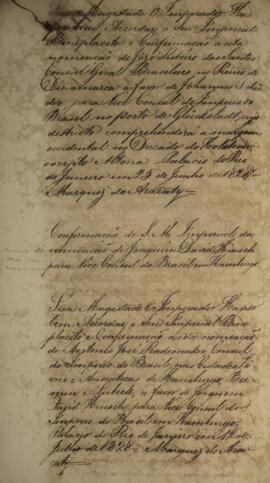 Sua Magestade O Imperador Ha
por bem Accordar o Seu Imperial
Beneplacito e Confirmação a esta
nomeação de José Ribeiro dos Santos
Consul Geral Brasileiro, no Reino de
Dinamarca a favor de Johannes
para Vice Consul do Imperio do
Brasil no porto de Glückstadt, cujo
districto comprehenderá a margem
occidental no Ducado do Holstein
excepto Altona Palacio do Rio
de Janeiro em 25 de Junho de 1828
Marquez do Aracaty
Confirmação de S. M. Imperial, da
nomeação de Joaquim David Hinsch
para Vice Consul do Brasil em Hamburgo
Sua Magestade O Imperador Ha por
bem Accordar o Seu Imperial Bene
placito e Confirmação a esta nomeação
de Antonio José Rademaker, Consul
do Imperio do Brasil nas Cidades Li
vres e Anseaticas de Hamburgo, Bre
men e Lubeck, a favor de Joaquim
David Hinsch para Vice Consul do
Imperio do Brasil em Hamburgo.
Palacio do Rio de Janeiro em de
Julho de 1828 Marquez do Ara
caty